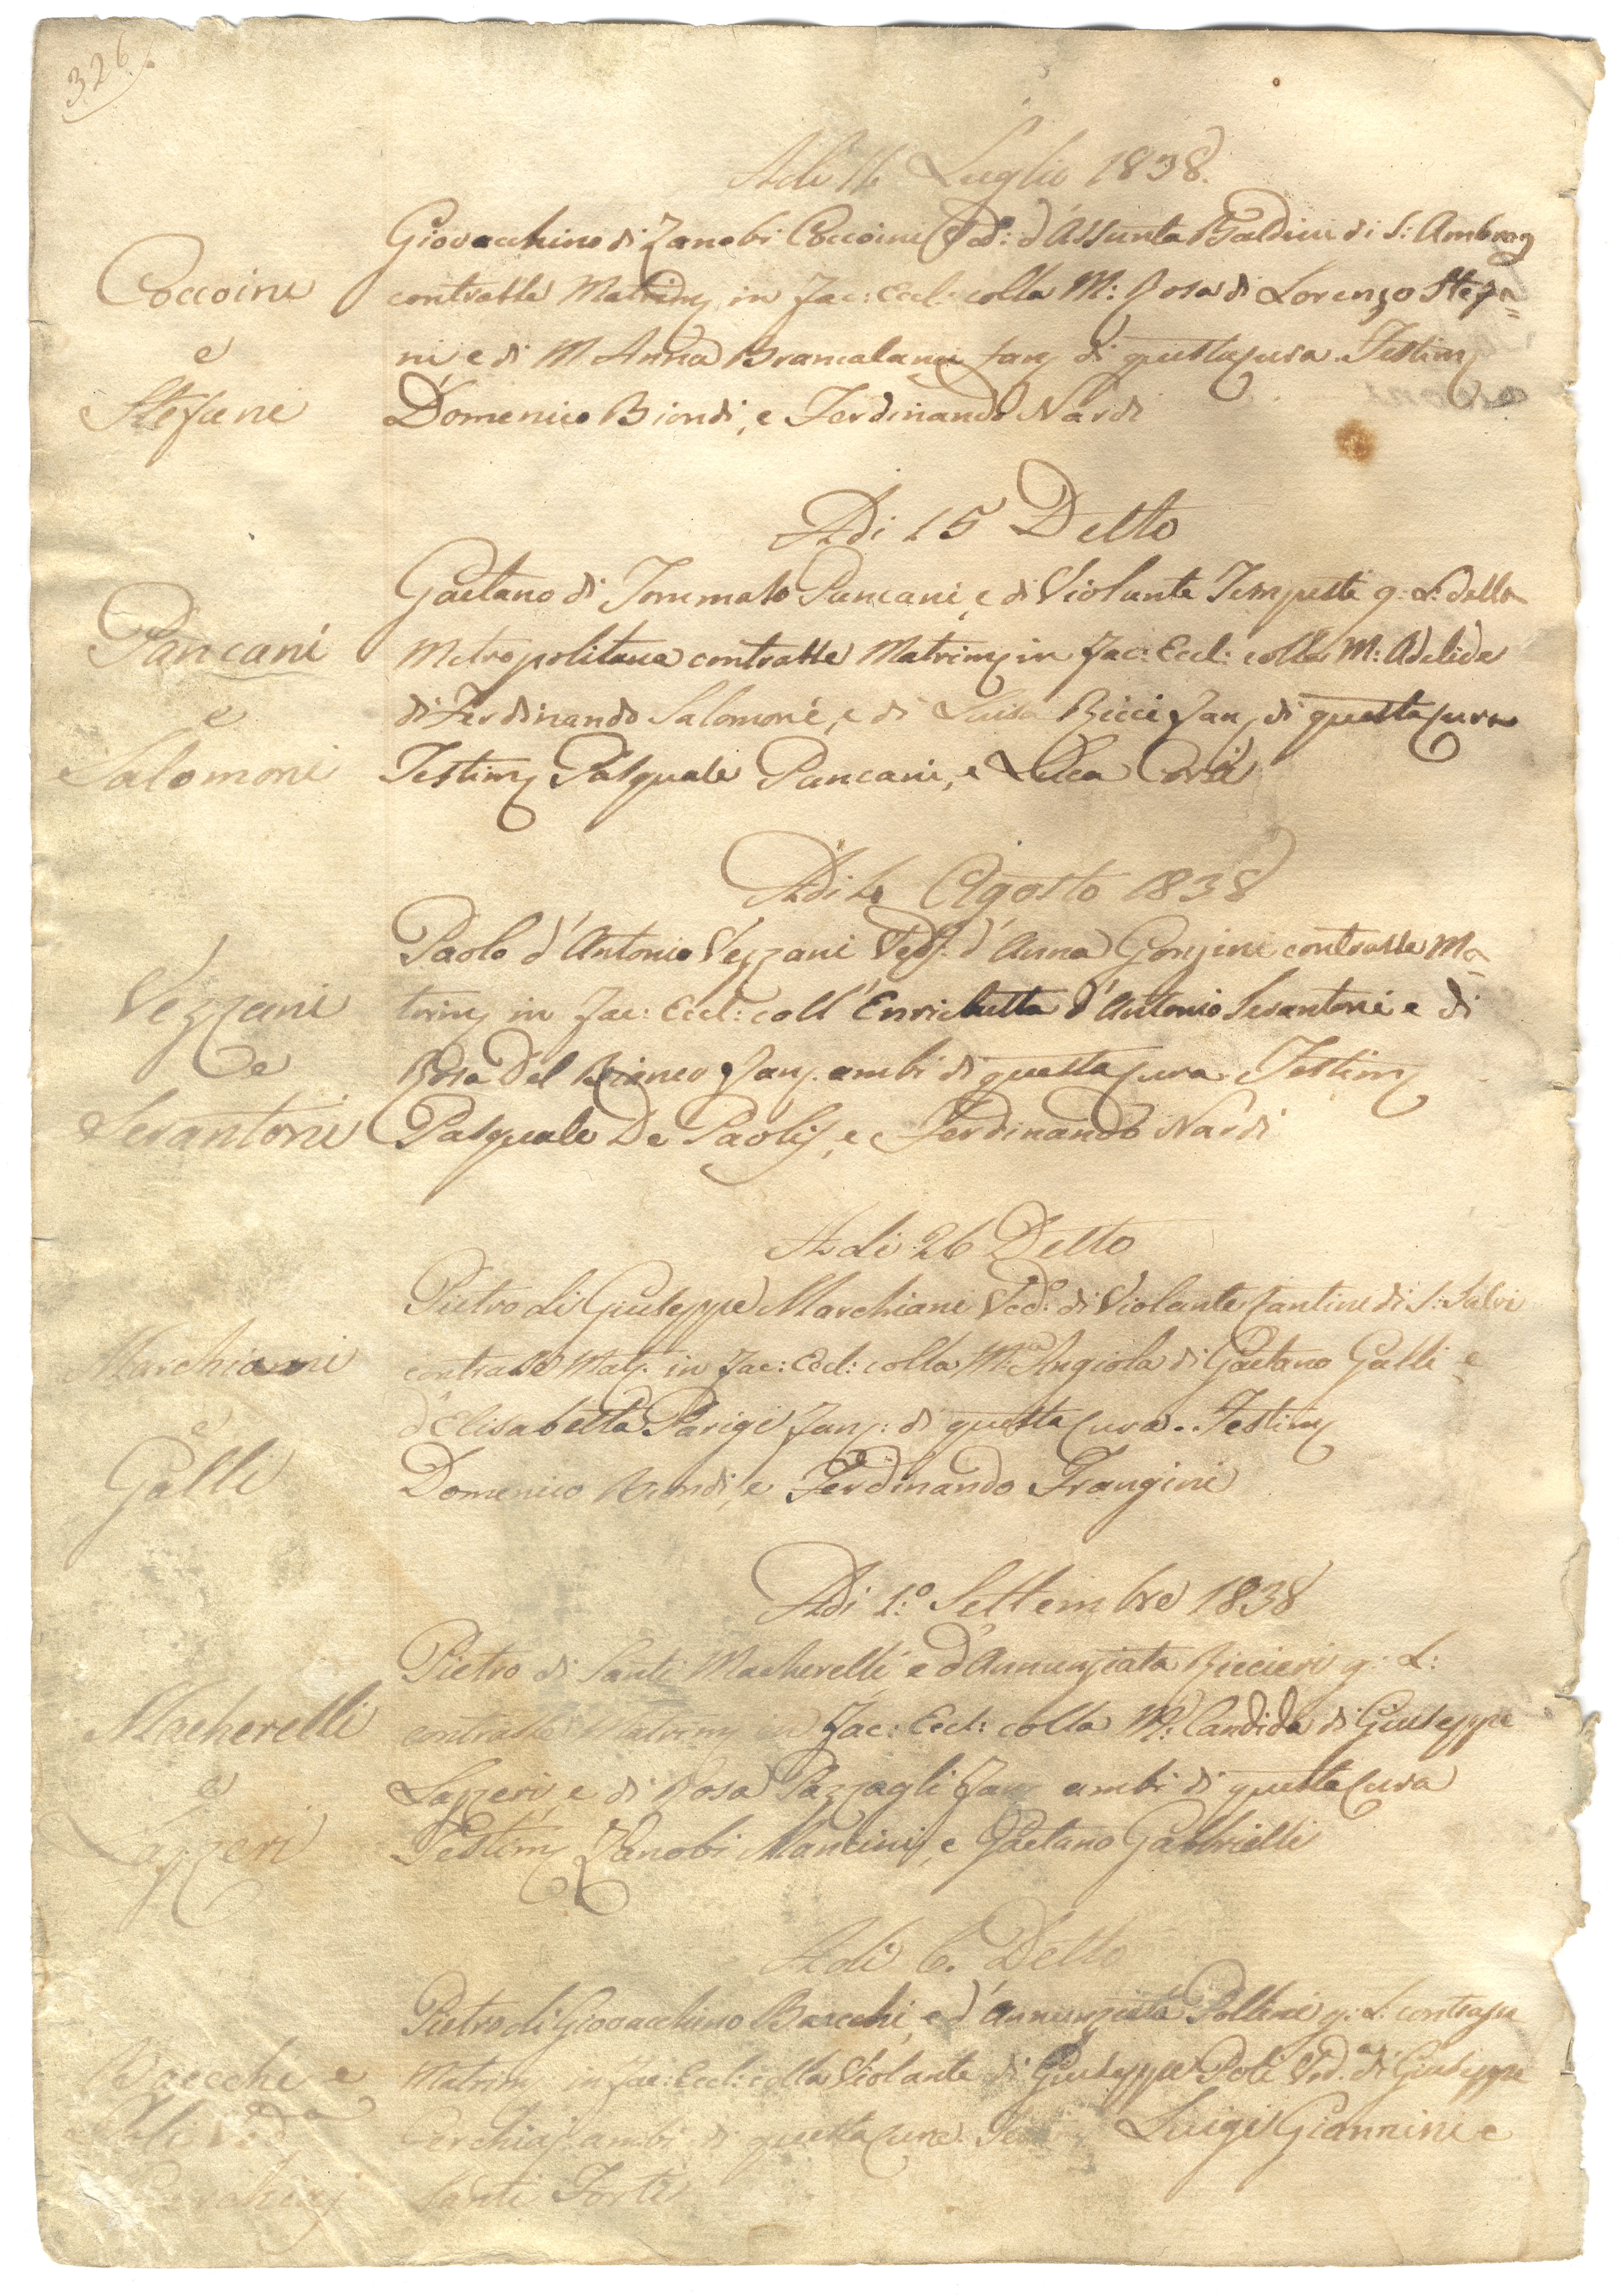 326.
Adi 14 Luglio 1838.
Giovacchino di Zanobi Coccoini Ved: d'Assunta Baldini di S: Ambrog
Coccoini
contratte Matrim in Fac: Eccl: colla M: Rosa di Lorenzo Stefa=
e
ni, e di M. Anna Brancalani Fan di questa Cura Testim
Stefani
Domenico Biondi, e Ferdinando Nardi
Adi 15 Detto
Gaetano di Tommaso Pancani, e di Violante Tempesti g: L: della
Pancani
Metropolitana contratte Matrim in Fac: Eccl: colla M: Adelide
e
di Ferdinando Salomoni, e di Luisa Ricci Fan di questa Cura
Salomoni
Testim Pasquale Pancani, e Luca
Adi 4 Agosto 1838
Paolo d'Antonio Vezzani Ved: d'Anna contratte Ma
Vezzani
trim in Fac: Eccl: coll'Enrichetta d'Antonio Serantoni e di
e
Rosa Del Bianco Fan. ambi di questa Cura Testim
Serantoni
Pasquale De Paolis, e Ferdinando Nardi
Adi 26 Detto
Pietro di Giuseppe Marchiani Ved: di Violante Cantini di S: Salvi
Marchiani
contratte Mat. in Fac: Eccl: colla M:a Angiola di Gaetano Galli e
e
d'Elisabetta Parigi Fan: di questa Cura. Testim
Galli
Domenico Biondi, e Ferdinando Frangini
Adi 1:o Settembre 1838
Pietro di Santi Macherelli, e d'Annunziata Riccieri g: L:
Macherelli
contratte Matrim in Fac: Eccl: colla M: Candida di Giuseppe
e
Lazzeri, e di Rosa Pazzagli Fan ambi di questa Cura
Lazzeri
Testim Zanobi Mancini, e Gaetano Gabbrielli
Adi 6. Detto
Pietro di Giovacchino Bacchi, e d'Annunziata g: L: contratte
Bacchi e
Matrim in Fac: Eccl: colla Violante di Giuseppe Poli Ved.a di Giuseppe
Poli Ved.a
Cerchiaj ambi di questa Cura Luigi Giannini e
Cerchiaj
Santi Forti